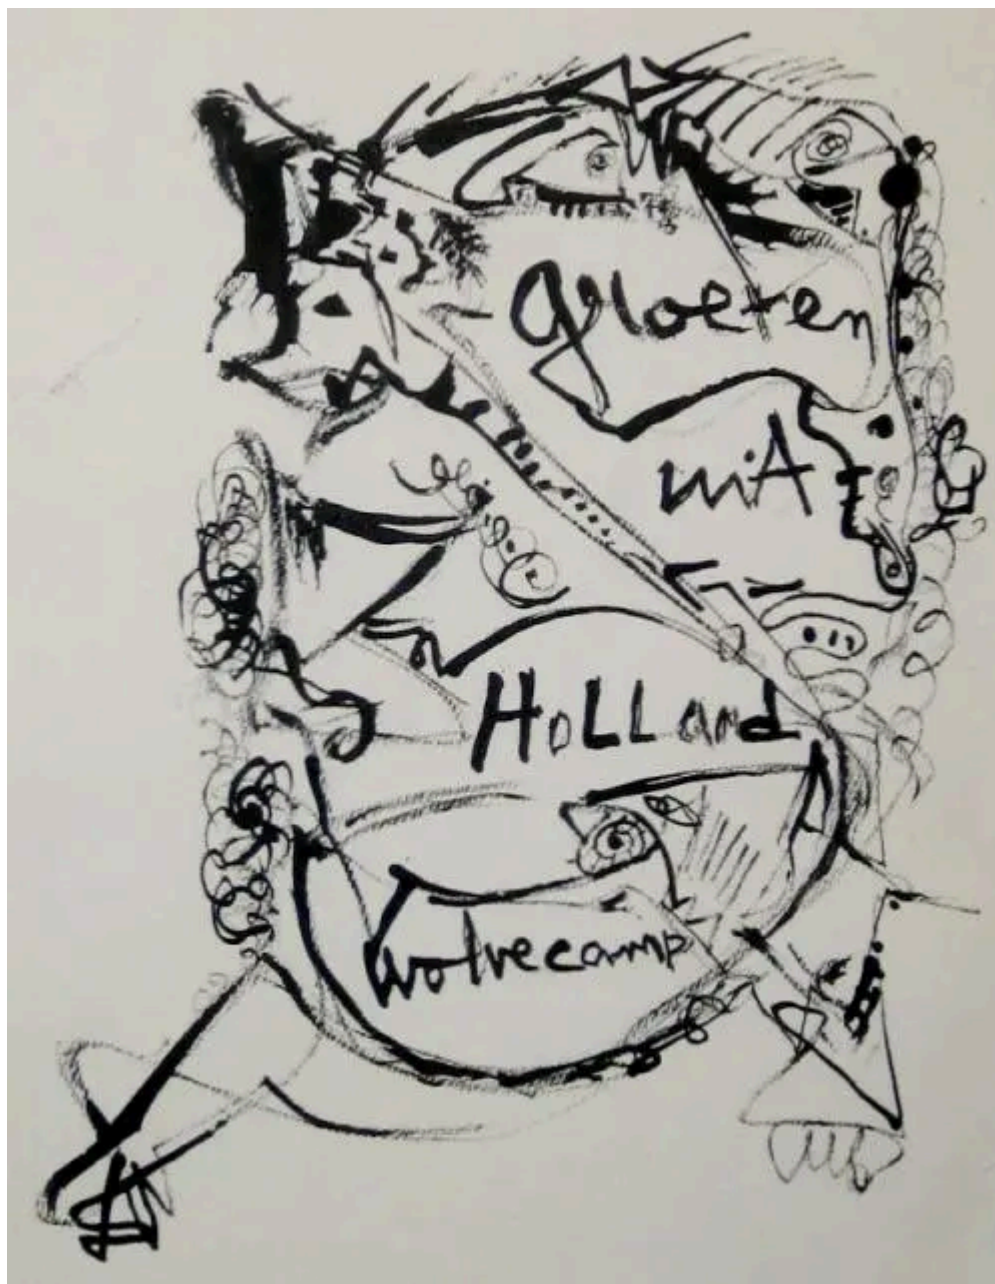 groeten
uit
HoLLand
wolvecamp